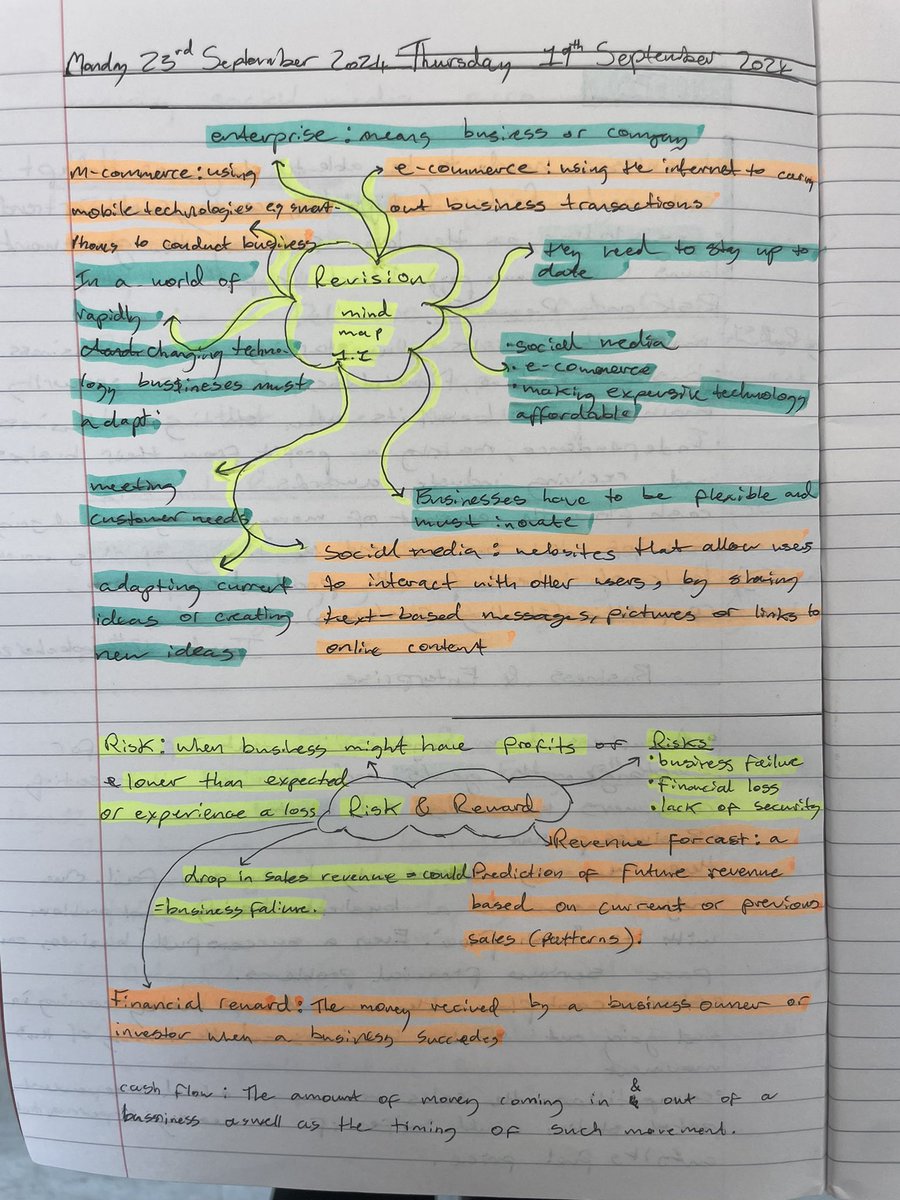 Monday 23rd September 2024 Thursday 19th September 2024
enterprise : means business or company
m-commerce : using
mobile technologies eg smart-
phones to conduct business
e-commerce : using the internet to carry
out business transactions
Revision
mind
map
1.1
they need to stay up to
date
In a world of
rapidly
changing techno-
logy bussineses must
adapt:
·social media
· e-commerce
·making expensive technology
affordable
meeting
customer needs
Businesses have to be flexible and
must inovate
adapting current
ideas or creating
new ideas
Social media : websites that allow users
to interact with other users, by sharing
text-based messages, pictures or links to
online content
Risk : when business might have profits or
lower than expected
or experience a loss
Risks
·business failure
·financial loss
·lack of security
Risk & Reward
Revenue forcast : a
Prediction of future revenue
based on current or previous
sales (patterns).
drop in sales revenue = could
=business failure.
Financial reward : The money recived by a business owner or
investor when a business succedes
cash flow : The amount of money coming in & out of a
bussiness aswell as the timing of such movement.